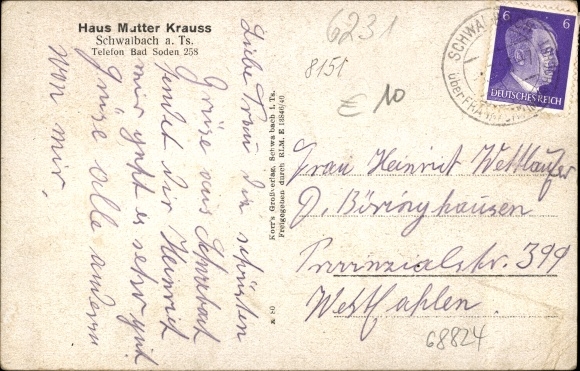 Haus Mutter Krauss
Schwalbach a. Ts.
Telefon Bad Soden 258
Liebe Frau die schönsten
Grüse aus Schwalbach
sendet Dir Heinrich
mir geht es sehr gut
Grüse alle andern
von mir.
Korr's Großverlag, Schwalbach i. Ts.
Freigegeben durch RLM. E 18846/40
x 80
6231
8151
€ 10
SCHWALBACH
über FRANKFURT
6 6
DEUTSCHES REICH
Frau Heinrich Wettlaufer
D. Böringhausen
Provinzialstr. 399
Westfahlen.
68824